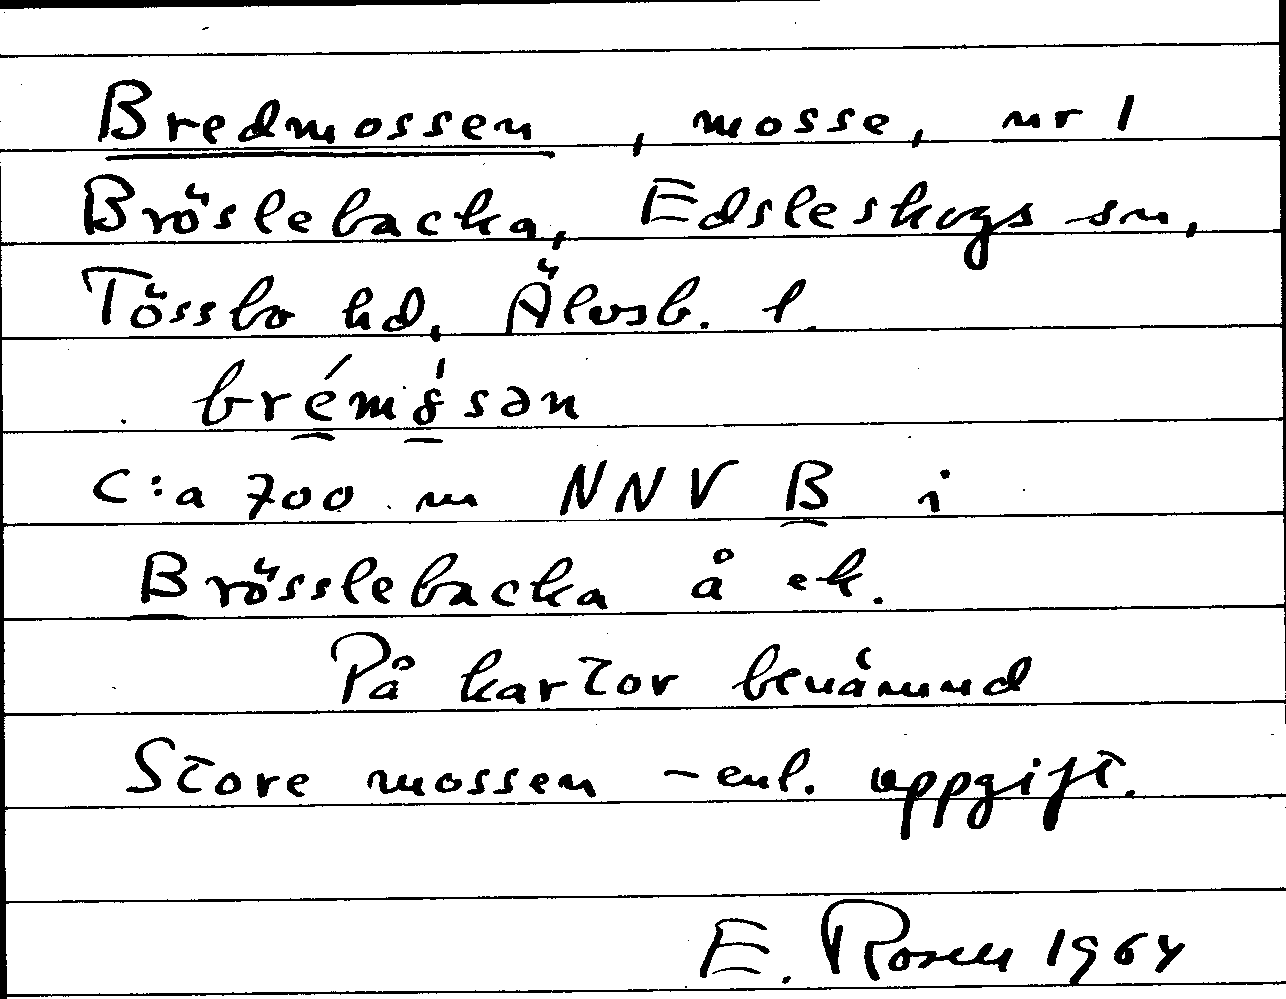 Bredmossen, mosse, nr 1
Bröslebacka, Edsleskogs sn,
Tössbo hd. Älvsb. l.
C:a 700 m NNV B i
Brösslebacka å ek.
På kartor benämnd
Store mossen - enl. uppgift.
E. Rosen 1964